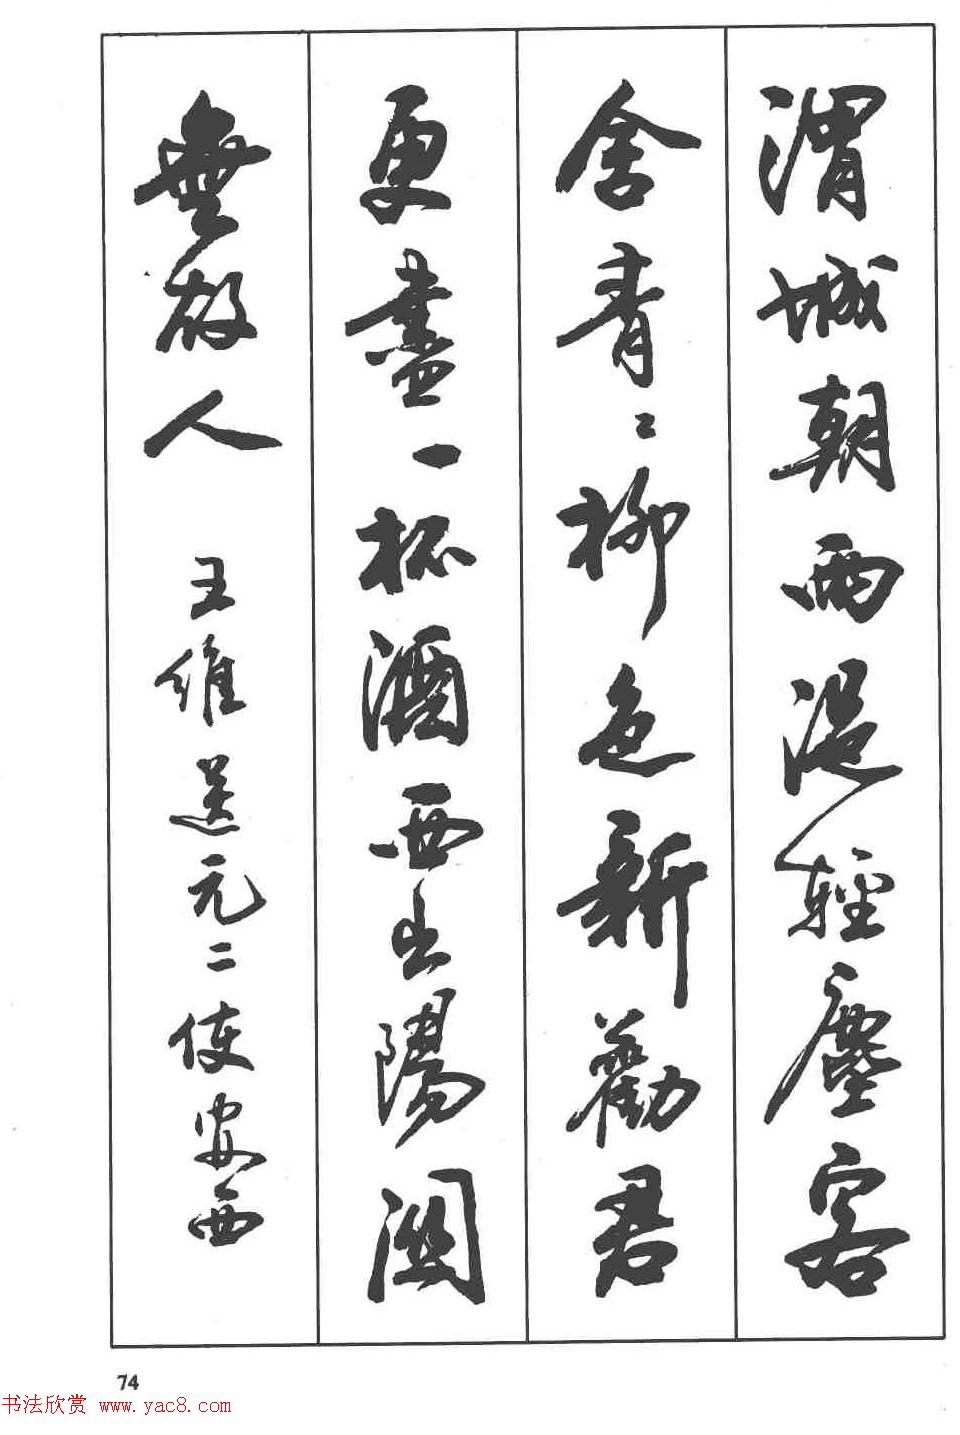 渭城朝雨浥輕塵客
舍青〻柳色新勸君
更盡一杯酒西出陽關
無故人 王維送元二使安西
74
书法欣赏 www.yac8.com